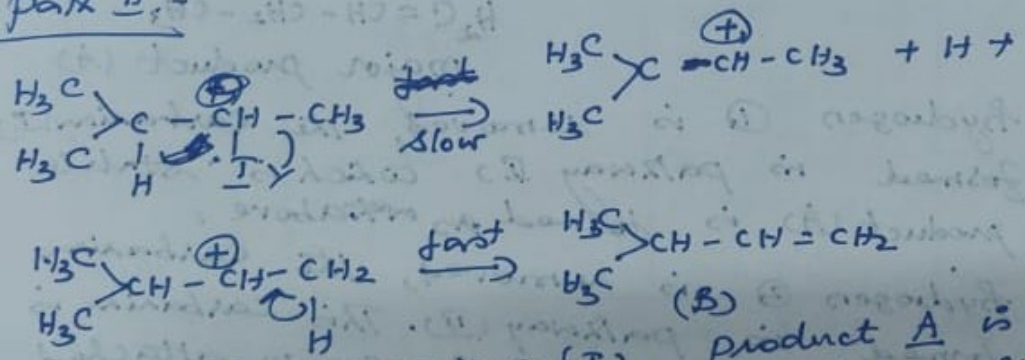 Part
H3C
H3C > C - CH - CH3
H I
slow
H3C
H3C > C - CH - CH3 + H+
H3C
H3C > CH - CH - CH2
H
fast
H3C
H3C > CH - CH = CH2
(B)
product A is